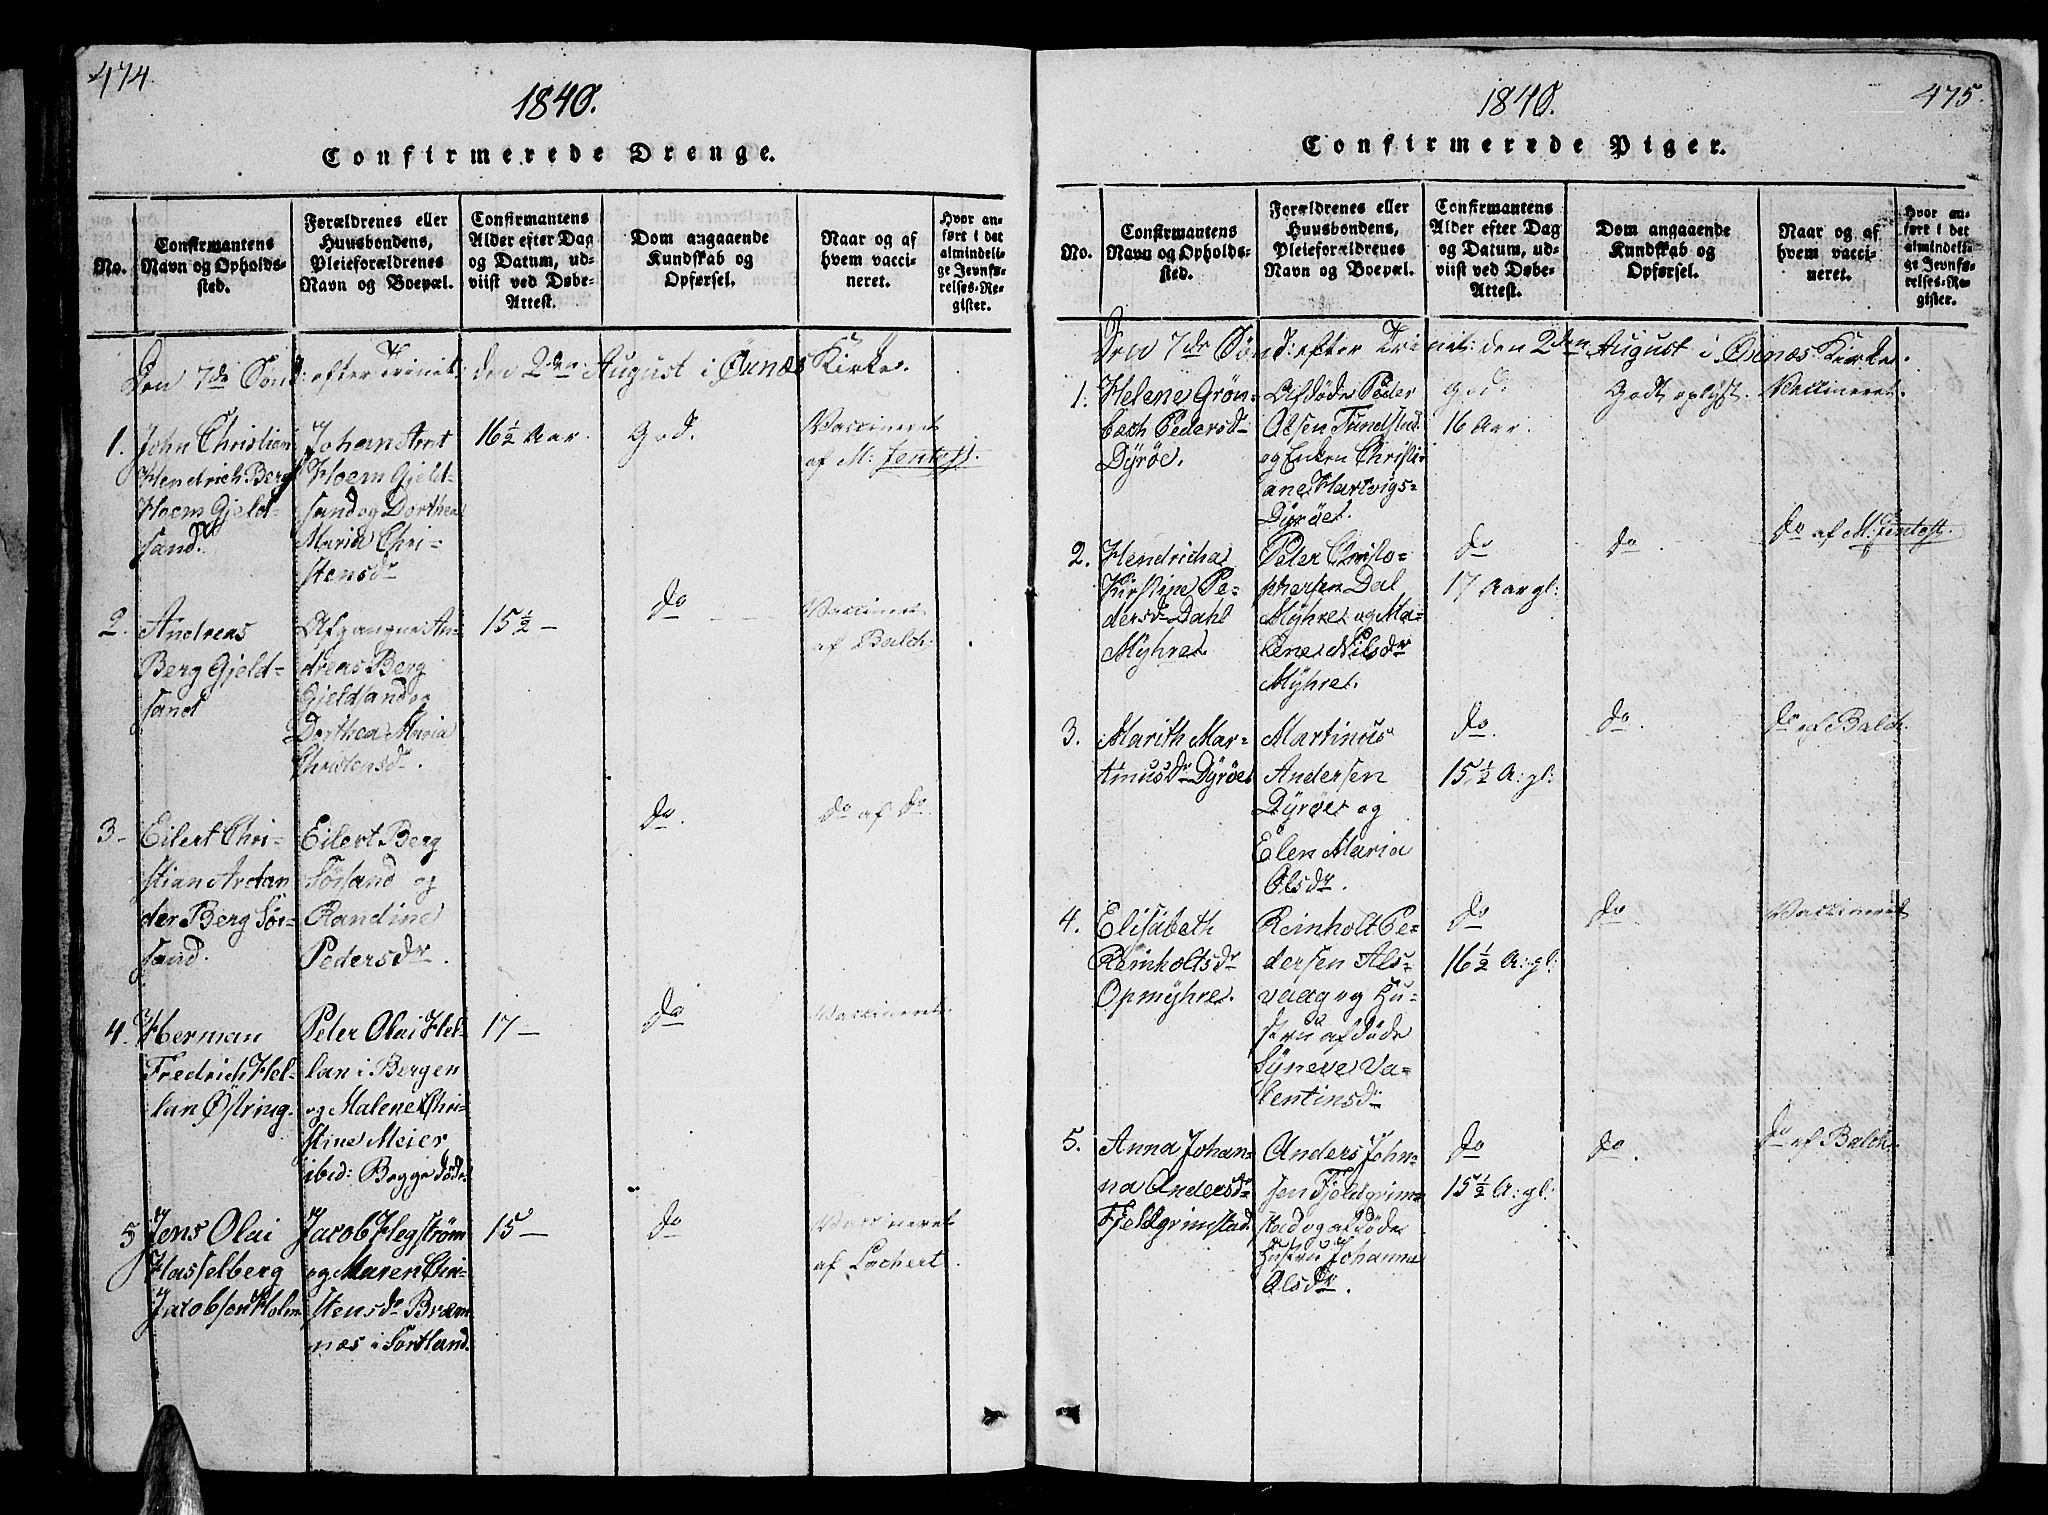 474.
1840.
Confirmerede Drenge.
No.
Confirmantens
Navn og Opholds-
sted.
Forældrenes eller
Huusbondens,
Pleieforældrenes
Navn og Boepæl.
Confirmantens
Alder efter Dag
og Datum, ud-
viist ved Døbe-
Attest.
Dom angaaende
Kundskab og
Opførsel.
Naar og af
hvem vacci-
neret.
Hvor an-
ført i det
almindeli-
ge Jevnfø-
relses-Re-
gister.
Den 7de Sønd: efter Trinit: den 2den August i Öxnæs Kirke.
1.
John Christian
Hendrich Berg
Hoem Gjeld-
sand.
Johan Arnt
Hoem Gjeld-
sand og Dorthea
Maria Chri-
stensdr
16½ Aar.
God.
Vaccineret
af M: Jentoft.
2.
Andreas
Berg Gjeld-
sand
Afgangne An-
dreas Berg
Gjeldsand og
Dorthea Maria
Christensdr.
15½ —
do
Vaccineret
af Balch.
3.
Eilert Chri-
stian
der Berg Sör-
sand.
Eilert Berg
Sörsand og
Randine
Pedersdr.
do.
do af do
4.
Herman
Fredrich Hel-
lan Östring.
Peter Olai Hel-
lan i Bergen
og Malene Chri-
stine Meier
ibid: Begge döde.
17 —
do
Vaccineret.
5
Jens Olai
Hasselberg
Jacobsen Holm
Jacob Hegström
og Maren Chri-
stensdr Bræm-
næs i Sortland.
15 —
do
Vaccineret
af Lochert.
475.
1840.
Confirmerede Piger.
No.
Confirmantens
Navn og Opholds-
sted.
Forældrenes eller
Huusbondens,
Pleieforældrenes
Navn og Boepæl.
Confirmantens
Alder efter Dag
og Datum, ud-
viist ved Døbe-
Attest.
Dom angaaende
Kundskab og
Opførsel.
Naar og af
hvem vacci-
neret.
Hvor an-
ført i det
almindeli-
ge Jevnfø-
relses-Re-
gister.
Den 7de Sönd: efter Trinit: den 2den August i Öxnæs Kirke.
1.
Helene Grön-
bech Pedersdr
Dÿröe.
Afdöde Peder
Olsen Tundstad
og Enken Christi-
ane Hartvigs-
Dÿröe.
God:
16 Aar.
Godt oplyst.
Vaccineret.
2.
Hendricha
Kirstine Pe-
dersdr Dahl
Mÿhre.
Peter Christo-
phersen Dal
Mÿhre og Ma-
lene Nilsdr
Mÿhre.
do
17 Aar gl:
do
do af M: Jentoft.
3.
Marith Mar-
tinusdr Dÿröe
Martinus
Andersen
Dÿröe og
Elen Maria
Olsdr.
do.
15½ A: gl:
do.
do af Balch.
4.
Elisabeth
Reinholtsdr
Opmÿhre.
Reinholt Pe-
dersen Als-
vaag og Hu-
stru afdöde
Sÿneve Va-
lentinsdr
do
16½ A: gl:
do
Vaccineret
5.
Anna Johan-
na Andersdr
Fjeldgrimstad.
Anders John-
sen Fjeldgrim-
stad og afdöde
Hustru Johanna
Olsdr.
do
15½ A: gl:
do.
do af Balch.